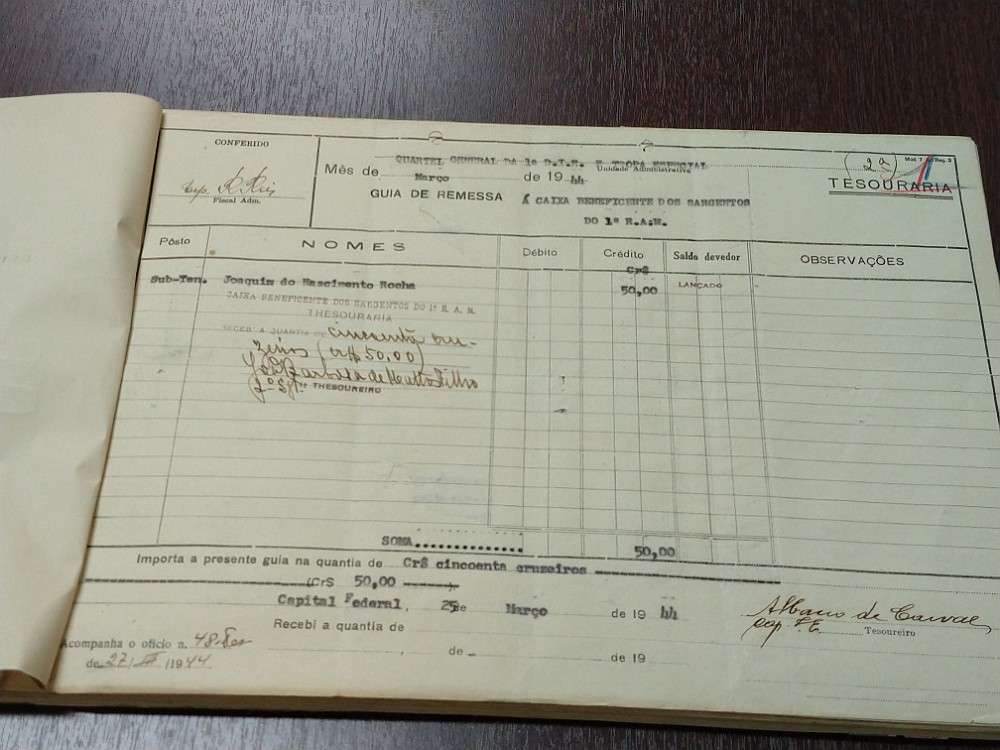 CONFERIDO
Fiscal Adm.
QUARTEL GENERAL DA 1ª D.I.E. E TROPA ESPECIAL
Unidade Administrativa
Mês de Março de 19 44
GUIA DE REMESSA Á CAIXA BENEFICENTE DOS SARGENTOS
DO 1º R.A.M.
2ª
TESOURARIA
Pôsto NOMES Débito Crédito Saldo devedor OBSERVAÇÕES
Cr$
Sub-Ten. Joaquim do Nascimento Rocha 50,00 LANÇADO
CAIXA BENEFICENTE DOS SARGENTOS DO 1º R. A. M.
THESOURARIA
RECEBI A QUANTIA DE cincoenta cru-
zeiros (cr$ 50,00)
Barbosa de Mattos Filho
2º Sgtº THESOUREIRO
SOMA 50,00
Importa a presente guia na quantia de Cr$ cincoenta cruzeiros
(Cr$ 50,00
Capital Federal, 25 de Março de 19 44
Recebi a quantia de
de de 19
Albano de
cap. I.E. Tesoureiro
Acompanha o ofício n. 48-
de 27/III/1944